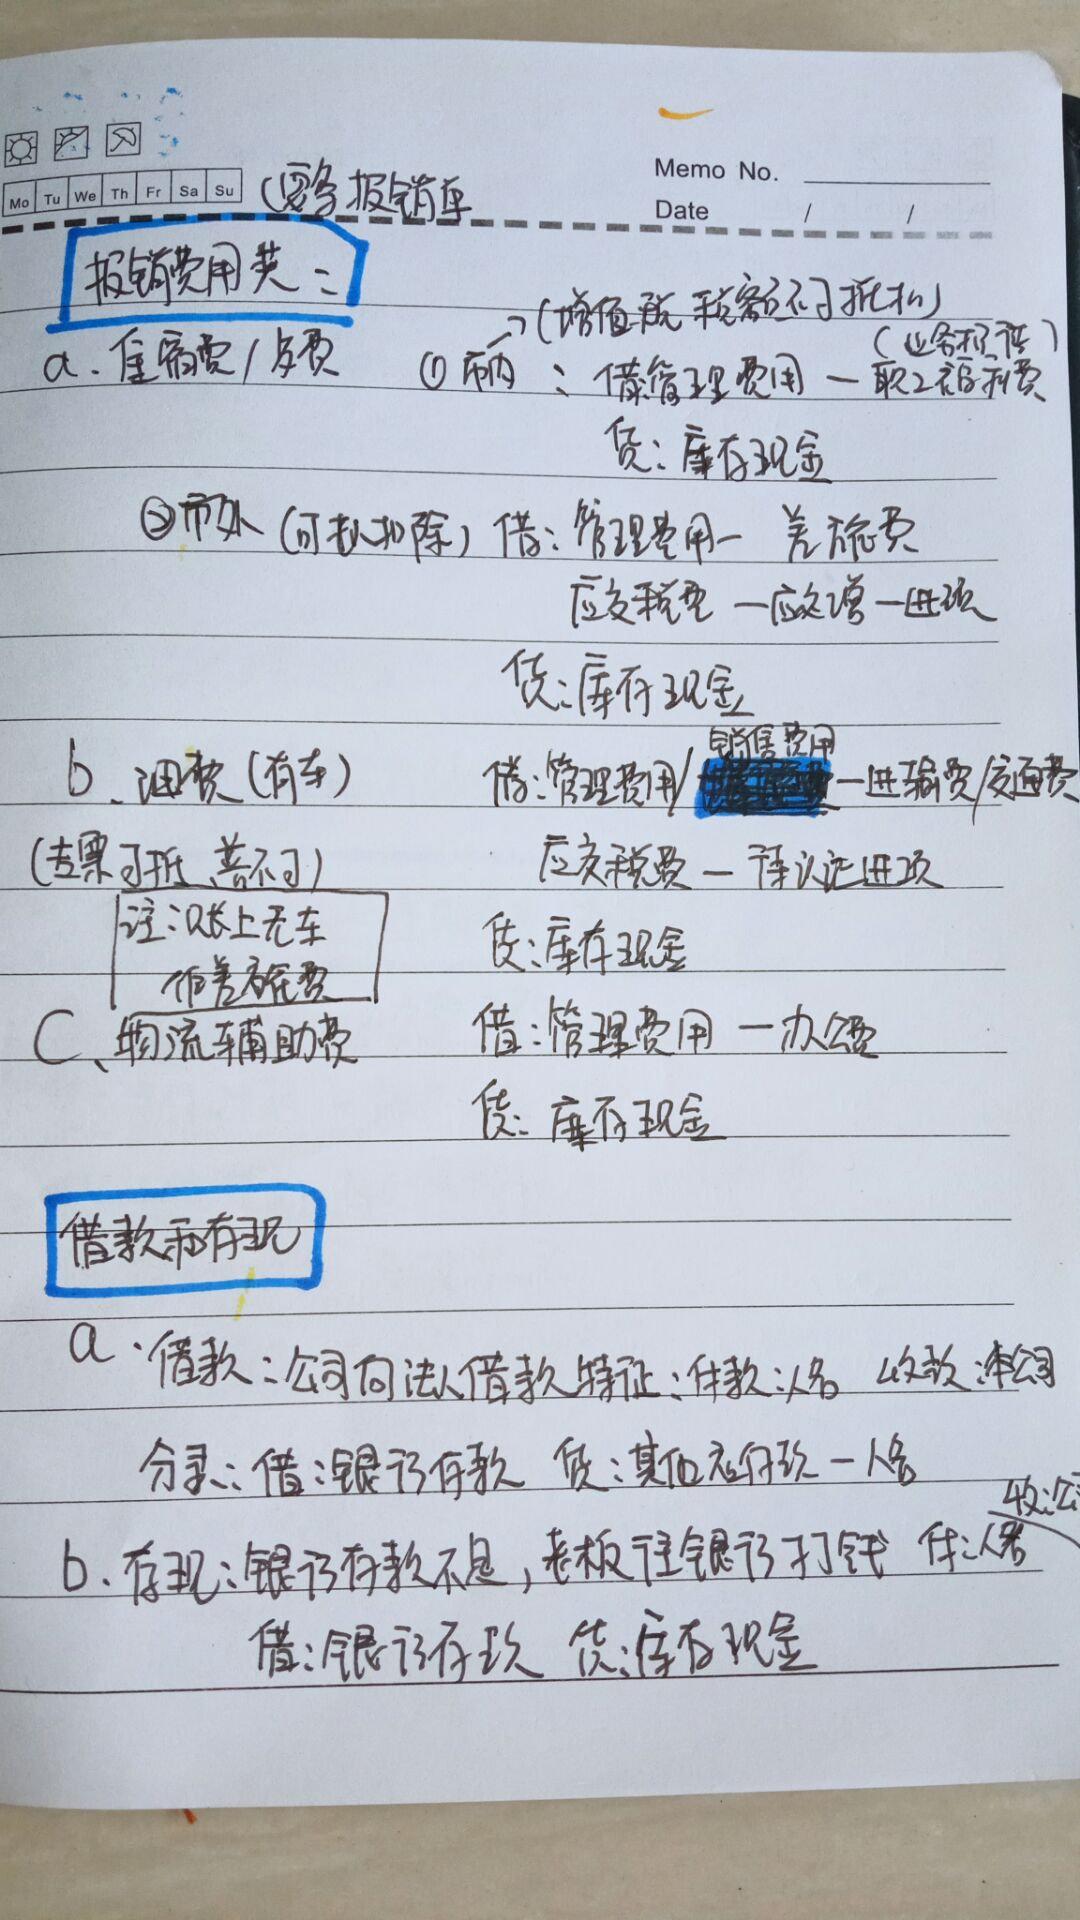 Memo No.
Mo Tu We Th Fr Sa Su
Date / /
(要务报销单
报销费用类：
(增值税税额不可抵扣)
a. 住宿费/ 费 ① 市内：借：管理费用—职工福利费
(业务招待)
贷：库存现金
②市外(可抵扣除) 借：管理费用— 差旅费
应交税费—应交增—进项
贷：库存现金
销售费用
b、油费(有车) 借：管理费用/ —运输费/交通费
(专票可抵、普不可) 应交税费—待认证进项
注：账上无车 贷：库存现金
作差旅费
C、物流辅助费 借：管理费用—办公费
贷：库存现金
借款和存现
a. 借款：公司向法人借款 特征：付款：人名 收款：本公司
分录：借：银行存款 贷：其他应付款—人名
收：公司
b. 存现：银行存款不足，老板往银行打钱 付：人名
借：银行存款 贷：库存现金